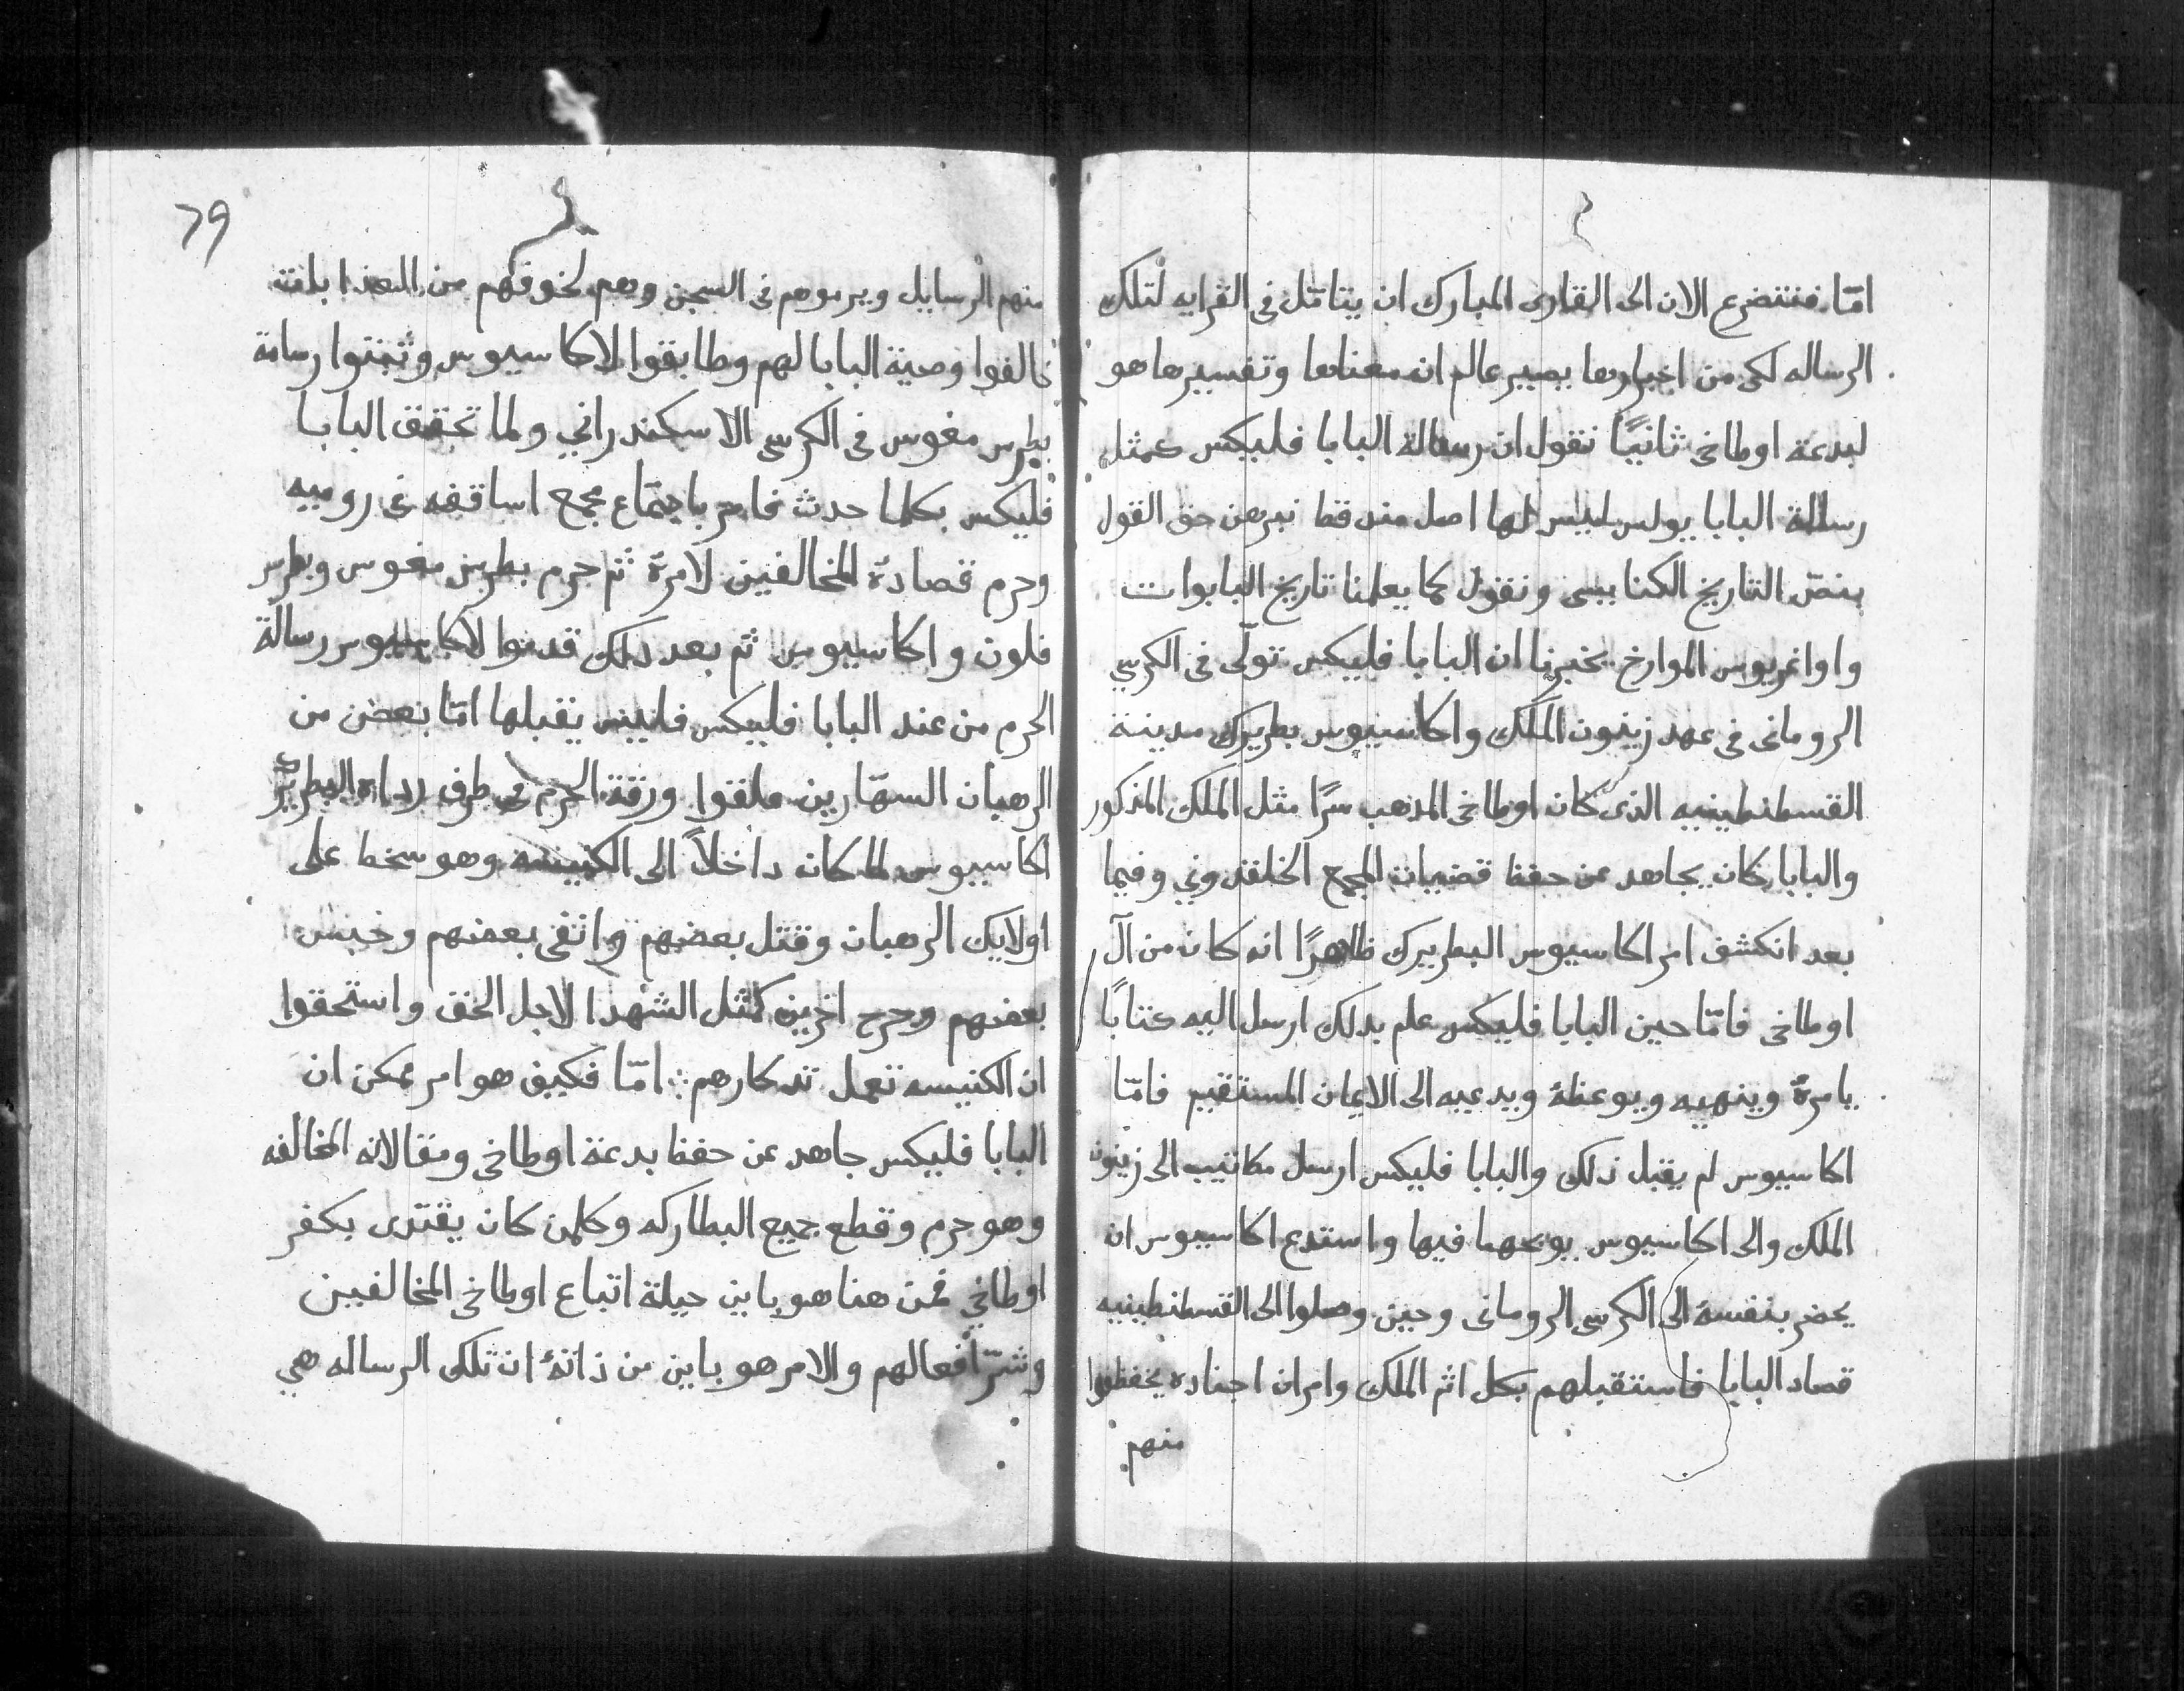 امّا فنتضرع الان الى القارى المبارك ان يتامّل فى القرايه لتلك
الرساله لكى من اخبارها يصير عالم ان معناها وتفسيرها هو
لبدعة اوطاخى ثانيًا نقول ان رسالة البابا فليكس كمثل
رسالة البابا يولس ليس لها اصل منه قط نبرهن حق القول
بنصّ التاريخ الكنايسى ونقول كما يعلمنا تاريخ البابوات
واواغريوس الموارخ يخبرنا ان البابا فليكس تولّى فى الكرسي
الرومانى فى عهد زينون الملك واكاسيوس بطريرك مدينة
القسطنطينيه الذى كان اوطاخى المذهب سرًا مثل الملك المذكور
والبابا كان يجاهد عن حفظ قضيات المجمع الخلقدوني وفيما
بعد انكشف امر اكاسيوس البطريرك ظاهرًا انه كان من آل
اوطاخى فامّا حين البابا فليكس علم بدلك ارسل اليه كتابًا
يامرهُ وينهيه ويوعظهُ ويدعيه الى الايمان المستقيم فامّا
اكاسيوس لم يقبل ذلك والبابا فليكس ارسل مكاتيب الى زينون
الملك والى اكاسيوس يوبخهما فيها واستدع اكاسيوس ان
يحضر بنفسهُ الى الكرسى الرومانى وحين وصلوا الى القسطنطينيه
قصاد البابا فاستقبلهم بكل اثم الملك وامر ان اجناده يخفظوا
منهم
79
منهم الرسايل ويرموهم فى السجن وهم لخوفهم من العذا بات
خالفوا وصية البابا لهم وطابقوا لاكاسيوس وثبتوا رسامة
بطرس مغوس فى الكرسي الاسكندراني ولما تحقق البابا
فليكس بكلما حدث فامر باجتماع مجمع اساقفه فى روميه
وحرم قصادهُ المخالفين لامرهُ ثم حرم بطرس مغوس وبطرس
فلون واكاسيوس ثم بعد دلك قدموا لاكاسيوس رسالة
الحرم من عند البابا فليكس فليس يقبلها امّا بعض من
الرهبان السهّارين علقوا ورقة الحرم فى طرف رداه البطريرك
اكاسيوس لما كان داخلاً الى الكنيسه وهو سخط على
اولايك الرهبان وقتل بعضهم وانفى بعضهم وحبس
بعضهم وجرح اخرين كمثل الشهدا لاجل الحق واستحقوا
ان الكنيسه تعمل تدكارهم ؞ امّا فكيف هو امر ممكن ان
البابا فليكس جاهد عن حفظ بدعة اوطاخى ومقالاته المخالفه
وهو حرم وقطع جميع البطاركه وكلمن كان يقتدى بكفر
اوطاخي فمن هنا هو باين حيلة اتباع اوطاخى المخالفين
وشرّ افعالهم والامر هو باين من ذاتهُ ان تلك الرساله هي